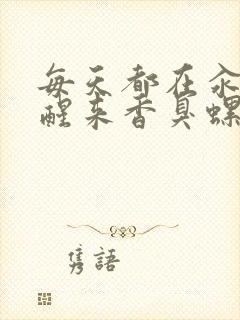 每天都在汆
醒来香臭螺
隽語